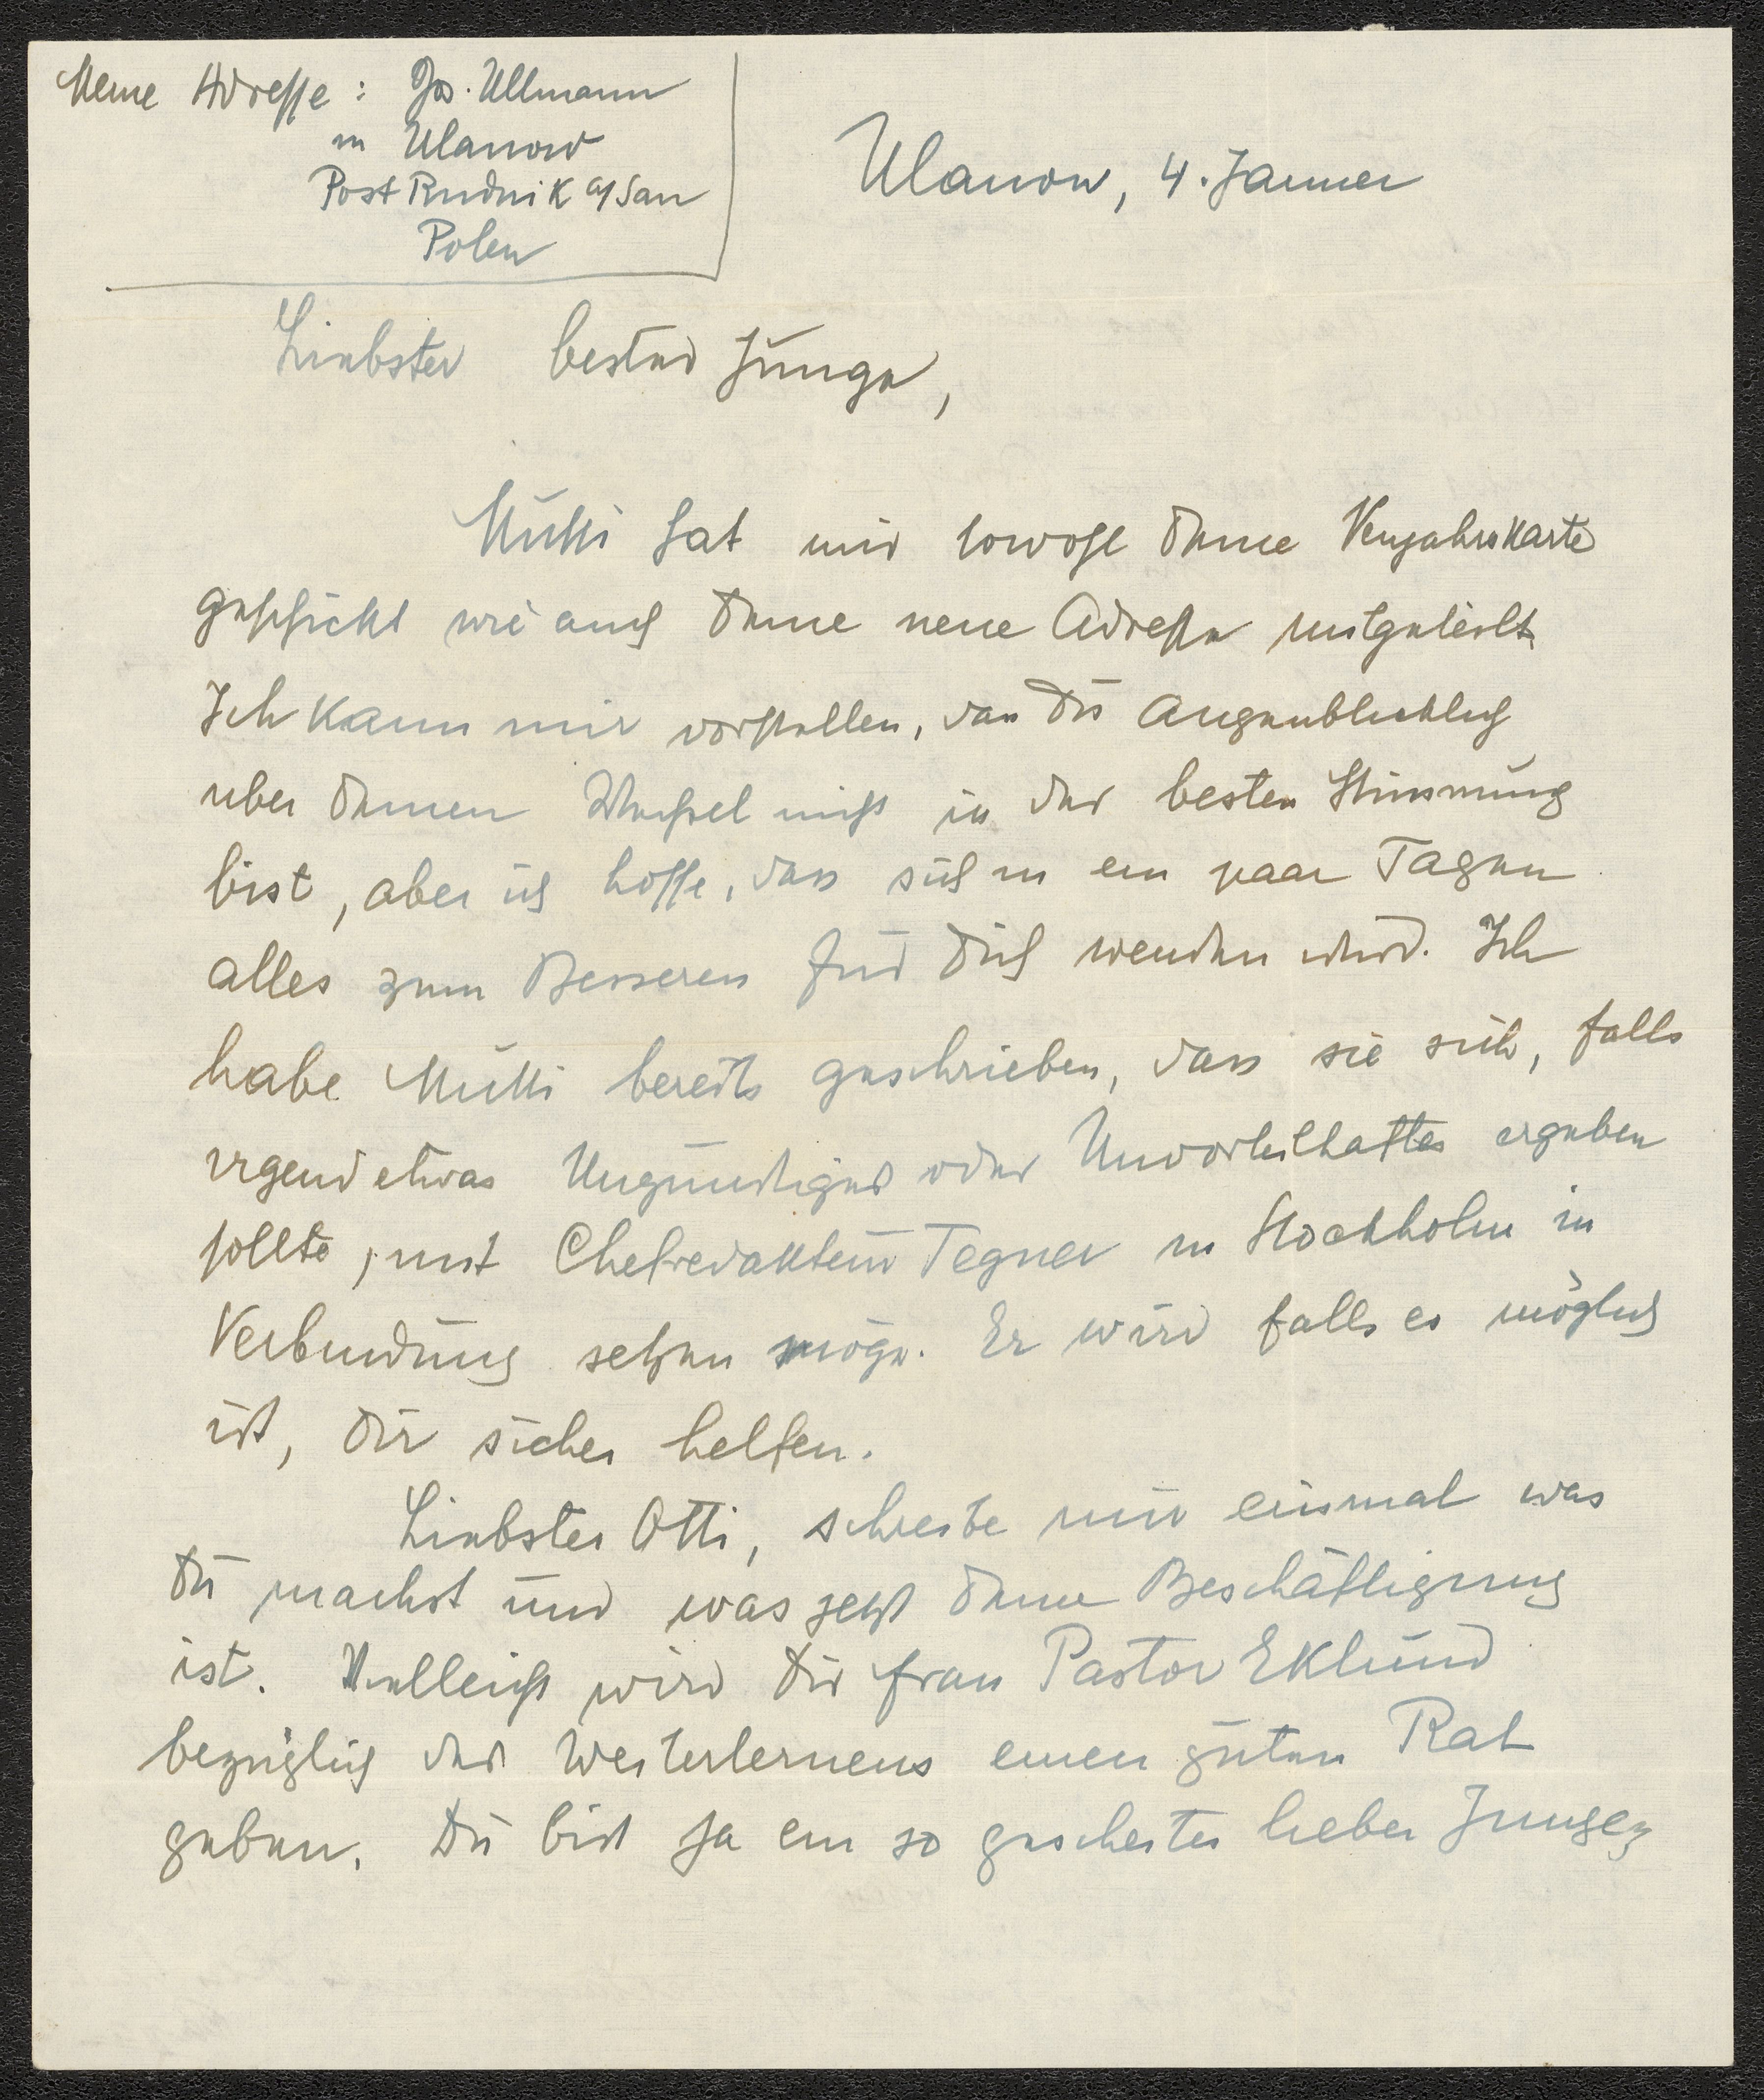 Meine Adresse: Jos. Ullmann
in Ulanow
Post Rudnik a/San
Polen
Ulanow, 4. Jänner
Liebster bester Junge,
Mutti hat mir sowohl Deine Neujahrskarte
geschickt wie auch Deine neue Adresse mitgeteilt.
Ich kann mir vorstellen, dass Du augenblicklich
über Deinen Wechsel nicht in der besten Stimmung
bist, aber ich hoffe, dass sich in ein paar Tagen
alles zum Besseren für Dich wenden wird. Ich
habe Mutti bereits geschrieben, dass sie sich, falls
irgend etwas Ungünstiges oder Unvorteilhaftes ergeben
sollte, mit Chefredakteur Tegner in Stockholm in
Verbindung setzen möge. Er wird falls es möglich
ist, Dir sicher helfen.
Liebster Otti, schreibe mir einmal was
Du machst und was jetzt Deine Beschäftigung
ist. Vielleicht wird Dir Frau Pastor Eklund
bezüglich des Weiterlernens einen guten Rat
geben. Du bist ja ein so gescheiter lieber Junge,